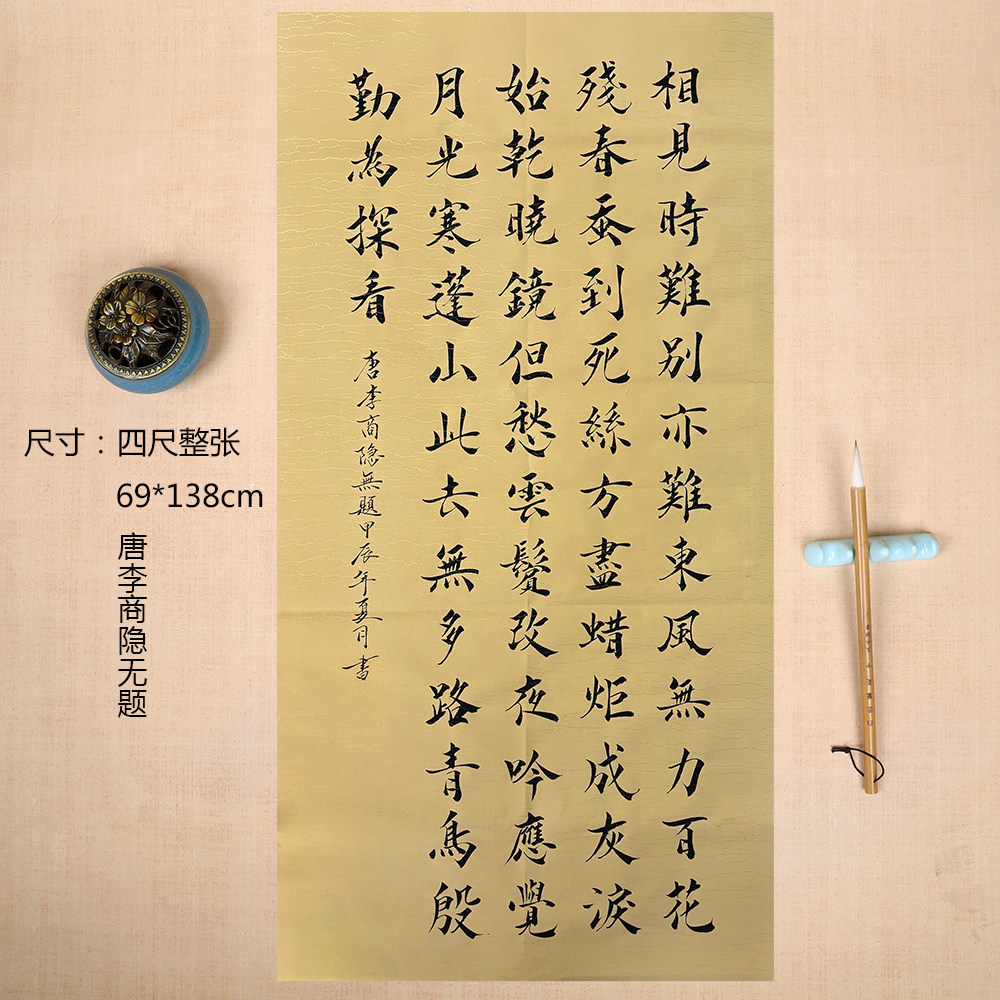 相見時難別亦難東風無力百花
殘春蚕到死絲方盡蜡炬成灰淚
始乾曉鏡但愁雲鬢改夜吟應覺
月光寒蓬山此去無多路青鳥殷
勤為探看
唐李商隐無題甲辰年夏月書
尺寸：四尺整张
69*138cm
唐李商隐无题